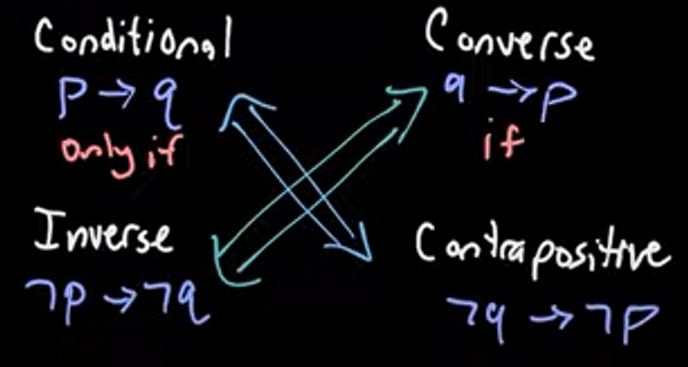 Conditional
p → q
only if
Converse
q → p
if
Inverse
¬p → ¬q
Contrapositive
¬q → ¬p